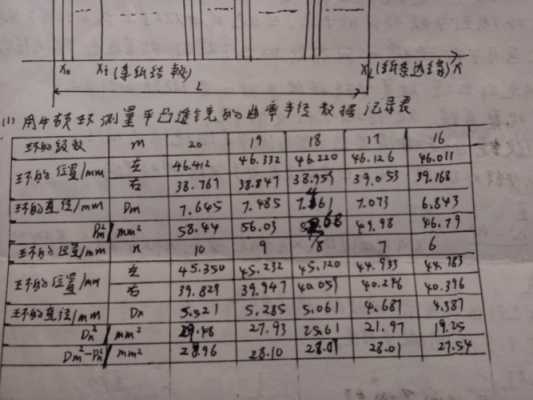 x₀ xᵢ(条纹级数) x_L(纸条边缘) x
L
(1) 用牛顿环测量平凸透镜的曲率半径数据记录表
环的级数 m 20 19 18 17 16
环的位置/mm 左 46.412 46.332 46.220 46.126 46.011
右 38.767 38.847 38.959 39.053 39.168
环的直径/mm Dm 7.645 7.485 7.073 6.843
Dm²/mm² 58.44 56.03 49.98 46.79
环的级数 n 10 9 8 7 6
环的位置/mm 左 45.350 45.232 45.120 44.933 44.783
右 39.829 39.947 40.059 40.246 40.396
环的直径/mm Dn 5.521 5.285 5.061 4.687 4.387
Dn²/mm² 27.93 25.61 21.97 19.25
Dm²-Dn²/mm² 28.96 28.10 28.07 28.01 27.54